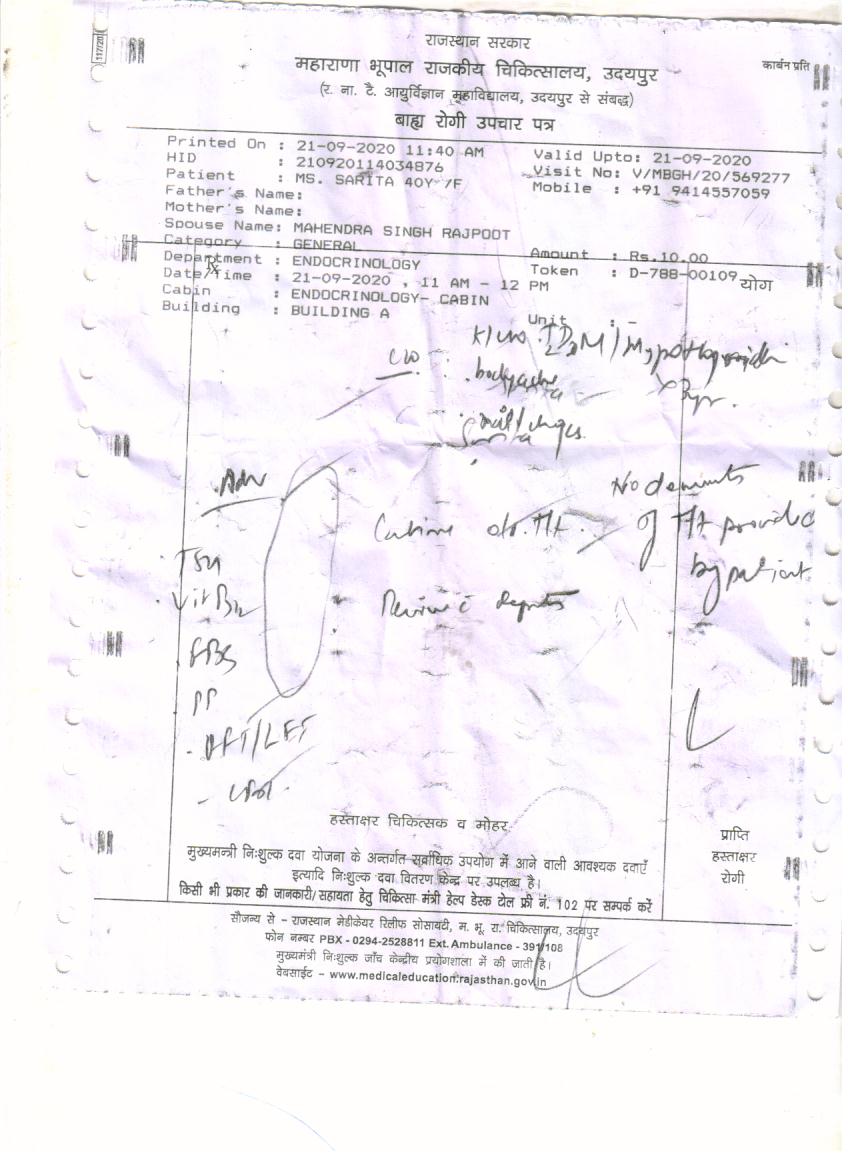 117/20
राजस्थान सरकार
महाराणा भूपाल राजकीय चिकित्सालय, उदयपुर
कार्बन प्रति
(र. ना. टै. आयुर्विज्ञान महाविद्यालय, उदयपुर से संबद्ध)
बाह्य रोगी उपचार पत्र
Printed On : 21-09-2020 11:40 AM Valid Upto: 21-09-2020
HID : 210920114034876 Visit No: V/MBGH/20/569277
Patient : MS. SARITA 40Y /F Mobile : +91 9414557059
Father's Name:
Mother's Name:
Spouse Name: MAHENDRA SINGH RAJPOOT
Category : GENERAL Amount : Rs.10.00
Department : ENDOCRINOLOGY Token : D-788-00109 योग
Rx
Date/Time : 21-09-2020 , 11 AM - 12 PM
Cabin : ENDOCRINOLOGY- CABIN
Building : BUILDING A Unit : -
K/co T2DM / Hypothyroidism
c/o . bodyache
Adv No documents
of Tt provided
by patient
TSH
Vit B12
Review c reports
FBS
PP
RFT/LFT
हस्ताक्षर चिकित्सक व मोहर
प्राप्ति
हस्ताक्षर
रोगी
मुख्यमन्त्री निःशुल्क दवा योजना के अन्तर्गत सर्वाधिक उपयोग में आने वाली आवश्यक दवाएँ
इत्यादि निःशुल्क दवा वितरण केन्द्र पर उपलब्ध है।
किसी भी प्रकार की जानकारी/सहायता हेतु चिकित्सा मंत्री हेल्प डेस्क टोल फ्री नं. 102 पर सम्पर्क करें
सौजन्य से - राजस्थान मेडीकेयर रिलीफ सोसायटी, म. भू. रा. चिकित्सालय, उदयपुर
फोन नम्बर PBX - 0294-2528811 Ext. Ambulance - 391/108
मुख्यमंत्री निःशुल्क जाँच केन्द्रीय प्रयोगशाला में की जाती है।
वेबसाईट - www.medicaleducation.rajasthan.gov.in